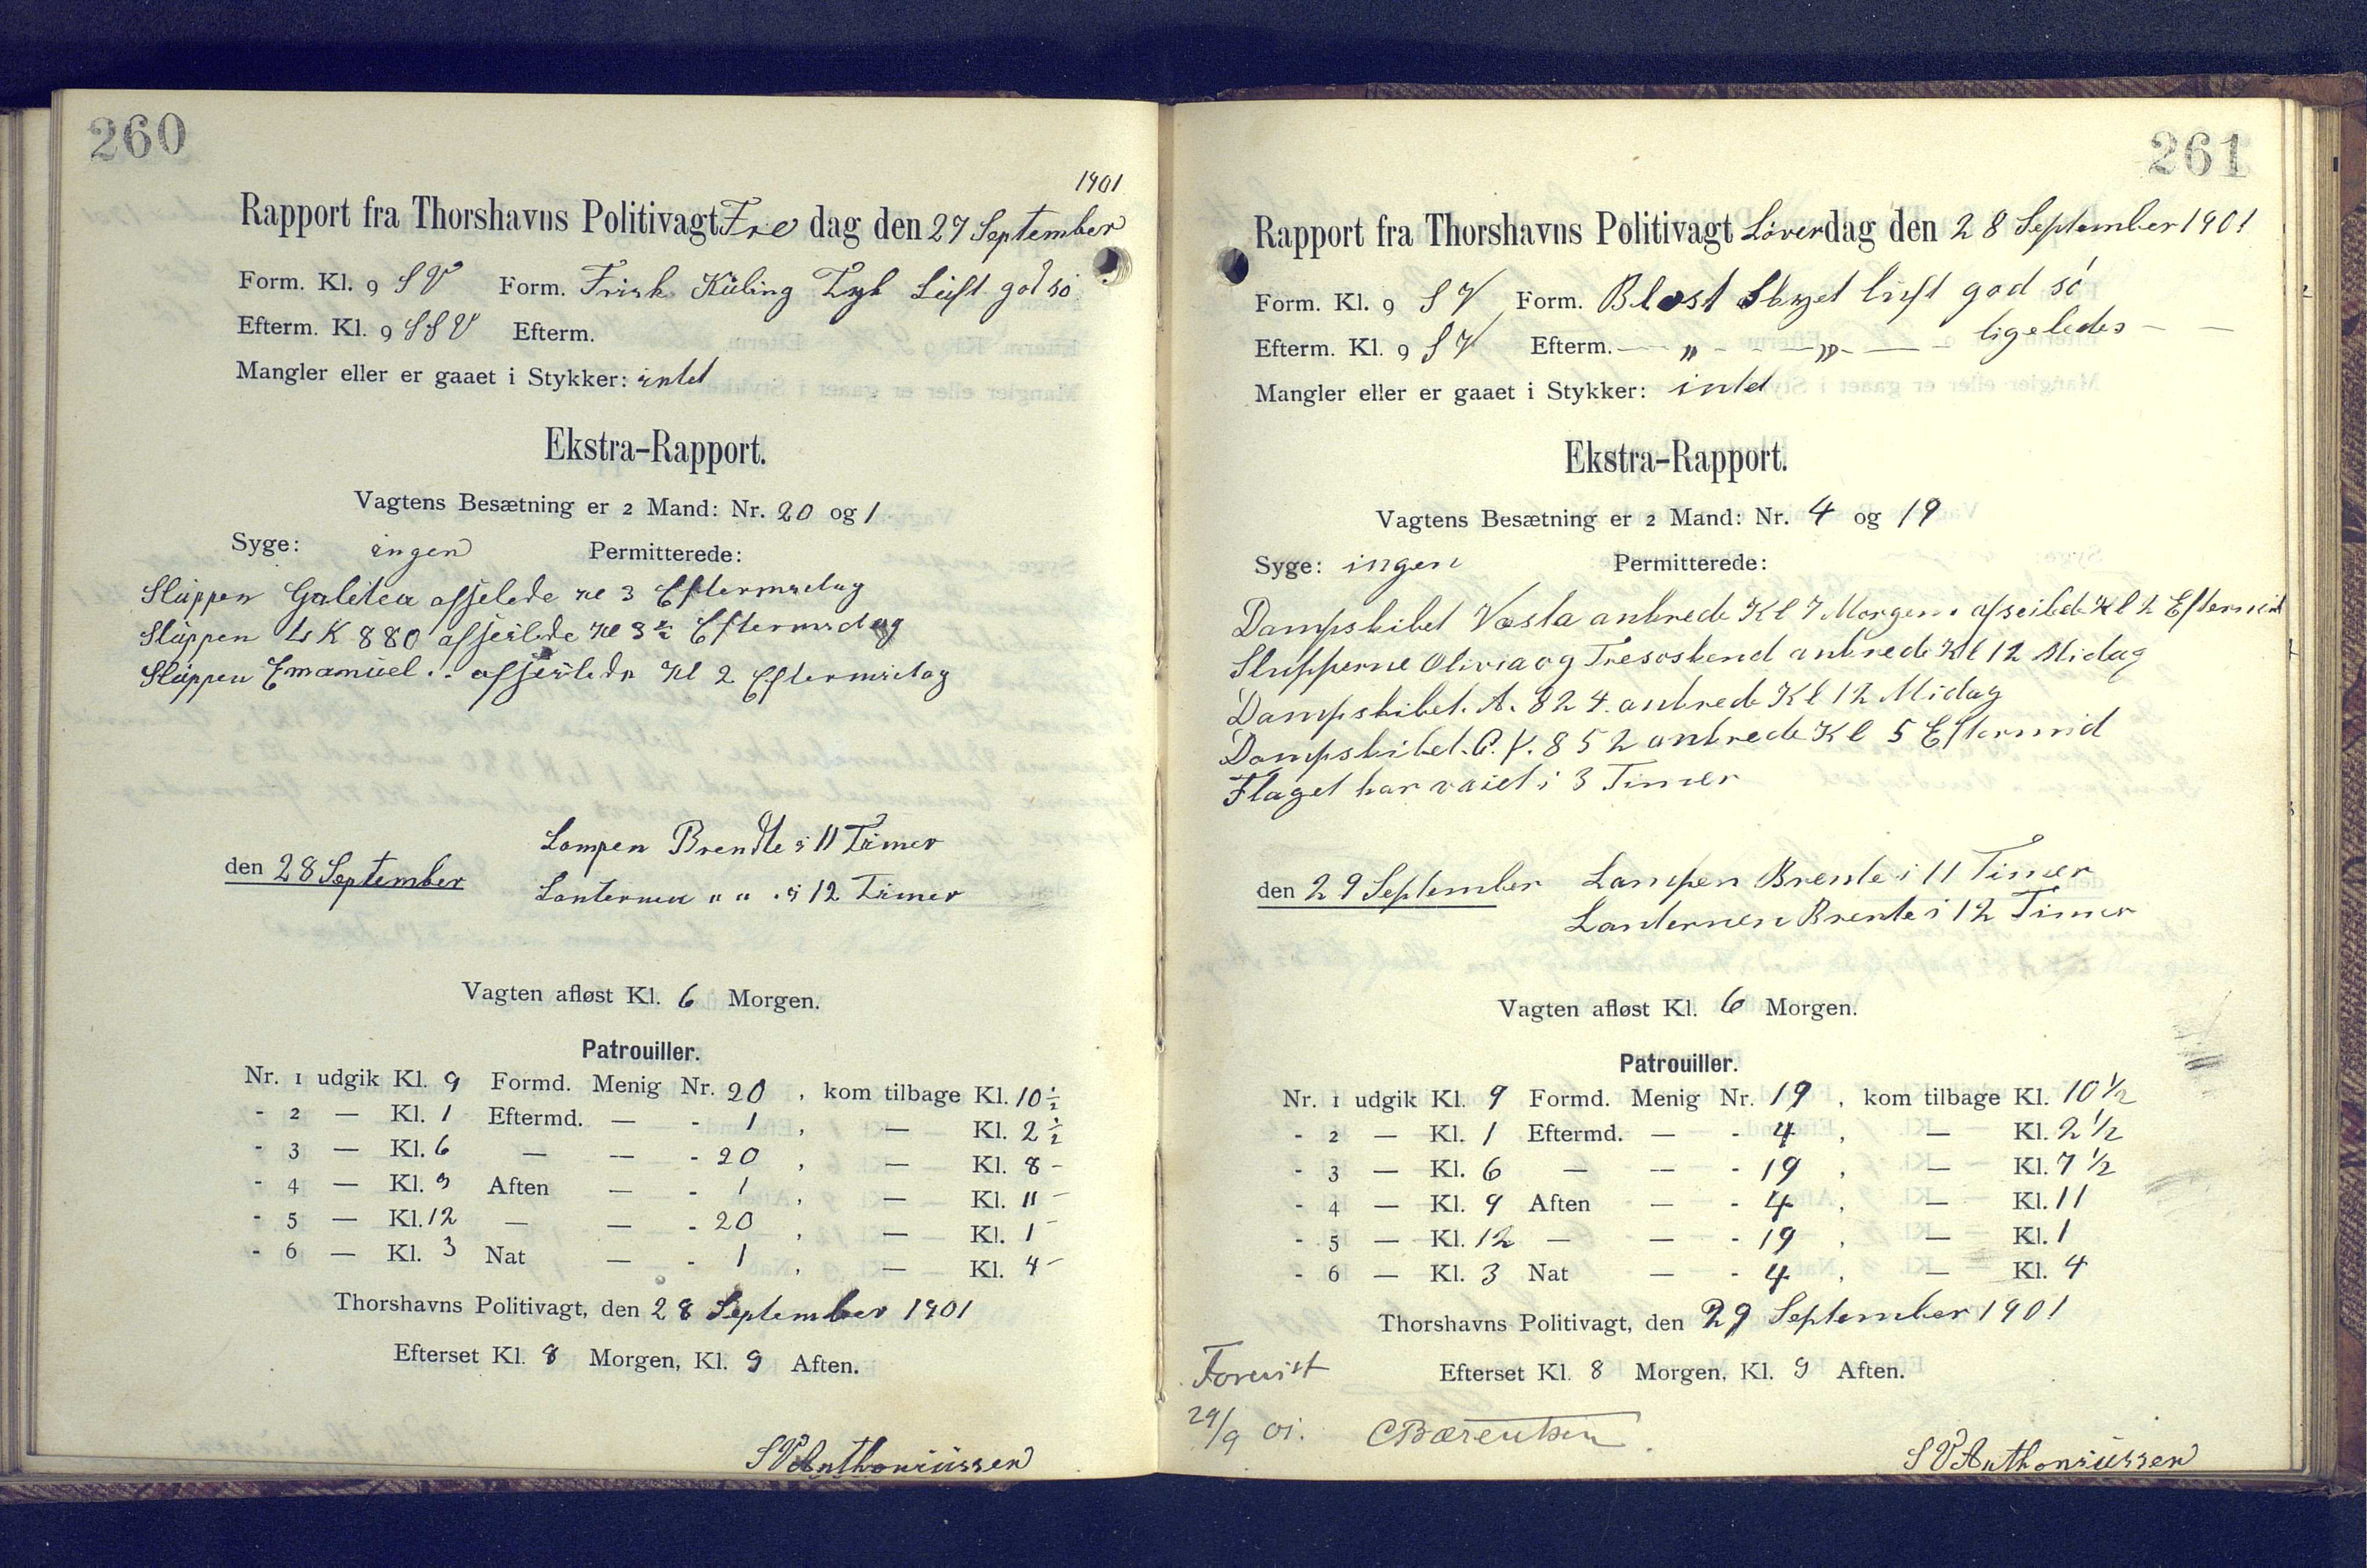 260
1901
Rapport fra Thorshavns Politivagt Fre dag den 27 September
Form. Kl. 9 SV Form. Frisk Küling Tyk Lüft god sö
Efterm. Kl. 9 SSV Efterm.
Mangler eller er gaaet i Stykker: intet
Ekstra-Rapport.
Vagtens Besætning er 2 Mand: Nr. 20 og 1
Syge: ingen Permitterede:
Slüppen Galitea afsjelede Kl 3 Eftermidag
Slüppen LK 880 afsejlede Kl 3½ Eftermidag
Slüppen Emanüel .. afsjeilede Kl 2 Eftermidag
Lampen Brendte i 11 Timer
den 28 September
Lanternen " " . i 12 Timer
Vagten afløst Kl. 6 Morgen.
Patrouiller.
Nr. 1 udgik Kl. 9 Formd. Menig Nr. 20, kom tilbage Kl. 10½
- 2 — Kl. 1 Eftermd. — - 1, — Kl. 2½
- 3 — Kl. 6 — — - 20, — Kl. 8 -
- 4 — Kl. 9 Aften — - 1, — Kl. 11 -
- 5 — Kl. 12 — — - 20, — Kl. 1 -
- 6 — Kl. 3 Nat — - 1, — Kl. 4 -
Thorshavns Politivagt, den 28 September 1901
Efterset Kl. 8 Morgen, Kl. 9 Aften.
SVAnthoniüssen
261
Rapport fra Thorshavns Politivagt Löverdag den 28 September 1901
Form. Kl. 9 SV Form. Blæst Skyet luft god sö
Efterm. Kl. 9 SV Efterm. — „ - - — „ - — - ligeledes - —
Mangler eller er gaaet i Stykker: intet
Ekstra-Rapport.
Vagtens Besætning er 2 Mand: Nr. 4 og 19
Syge: ingen Permitterede:
Dampskibet Væsta ankrede Kl 7 Morgen. afseilede Kl 2 Eftermid
Slupperne Olivia og Tresoskend ankrede Kl 12 Midag
Dampskibet. A. 824. ankrede Kl 12 Midag
Dampskibet. G. Y. 852 ankrede Kl 5 Eftermid
Flaget har vaiet i 3 Timer
den 29 September Lampen Brente i 11 Timer
Lanternen Brente i 12 Timer
Vagten afløst Kl. 6 Morgen.
Patrouiller.
Nr. 1 udgik Kl. 9 Formd. Menig Nr. 19, kom tilbage Kl. 10½
- 2 — Kl. 1 Eftermd. — - 4, — Kl. 2½
- 3 — Kl. 6 — — - 19, — Kl. 7½
- 4 — Kl. 9 Aften — - 4, — Kl. 11
- 5 — Kl. 12 — — - 19, — Kl. 1
- 6 — Kl. 3 Nat — - 4, — Kl. 4
Thorshavns Politivagt, den 29 September 1901
Efterset Kl. 8 Morgen, Kl. 9 Aften.
Forevist
29/9 01. CBærentsen
SVAnthoniüssen